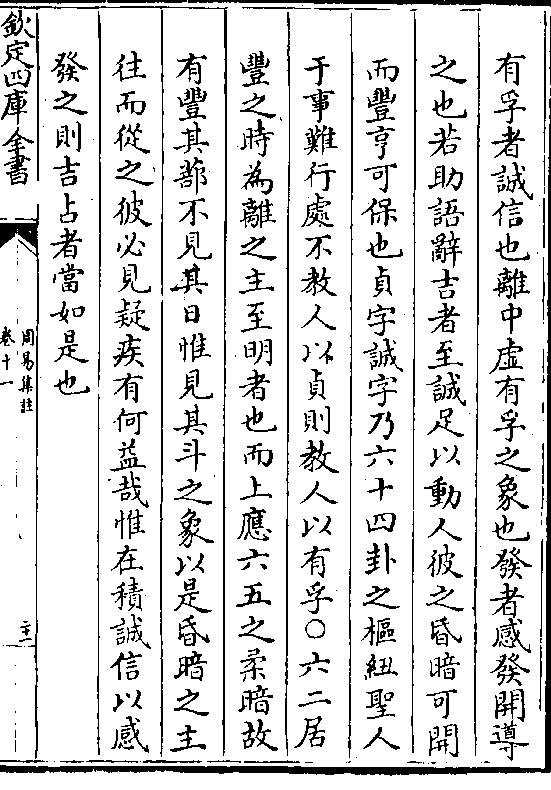 有孚者誠信也離中虛有孚之象也發者感發開導
之也若助語辭吉者至誠足以動人彼之昏暗可開
而豐亨可保也貞字誠字乃六十四卦之樞紐聖人
于事難行處不教人以貞則教人以有孚○六二居
豐之時為離之主至明者也而上應六五之柔暗故
有豐其蔀不見其日惟見其斗之象以是昏暗之主
往而從之彼必見疑疾有何益哉惟在積誠信以感
發之則吉占者當如是也
欽定四庫全書
周易集註
卷十一